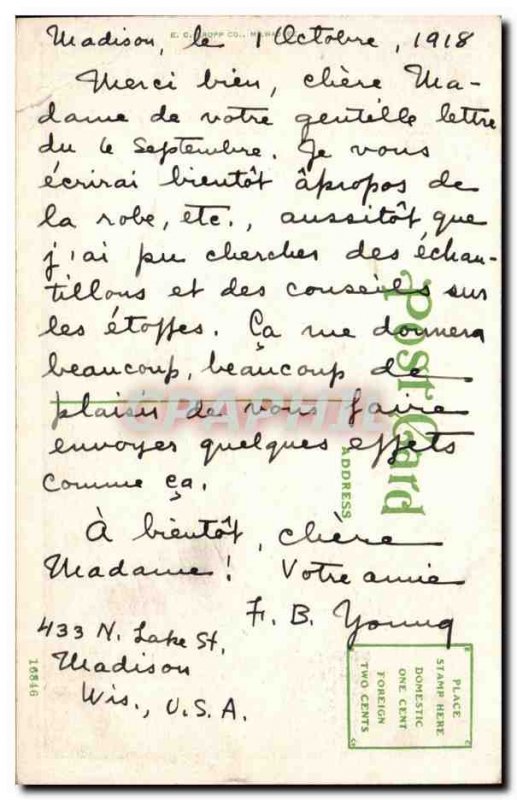 E. C. KROPP CO., MILWAUKEE
Madison, le 1 Octobre, 1918
Merci bien, chère Ma-
dame de votre gentille lettre
du 6 Septembre. Je vous
écrirai bientôt âpropos de
la robe, etc., aussitôt que
j'ai pu chercher des échan-
tillons et des conseils sur
les étoffes. Ça me donnera
beaucoup, beaucoup de
plaisir de vous faire
envoyer quelques effets
comme ça.
À bientôt, chère
Madame! Votre amie
F. B. Young
433 N. Lake St.
Madison
Wis., U.S.A.
Post Card
ADDRESS
CPAPHIL
PLACE
STAMP HERE
DOMESTIC
ONE CENT
FOREIGN
TWO CENTS
16846